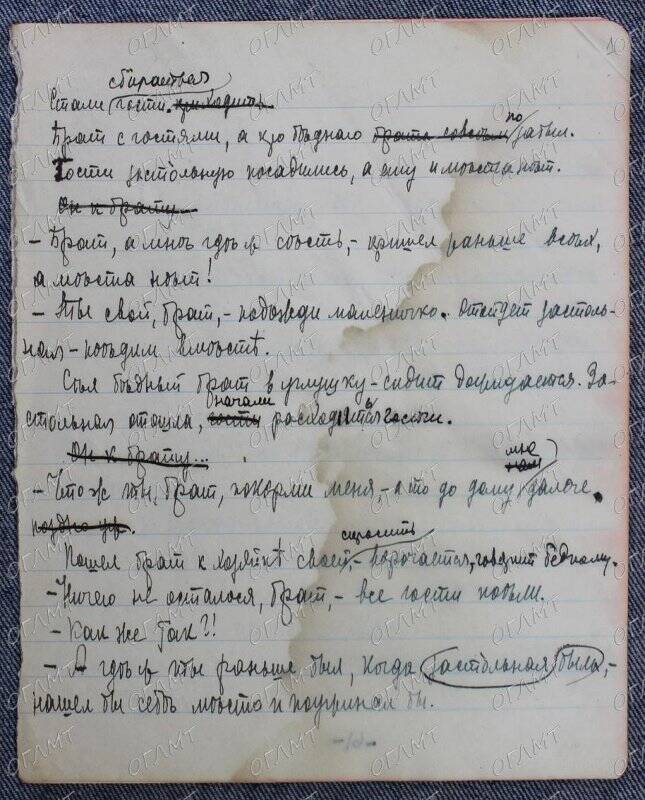 сбираться
Стали гости приходить
Брат с гостями, а про бѣднаго брата совсѣмъ позабыл.
Гости застольную посадились, а ему и мѣста нѣт.
Он к брату
– Брат, а мнѣ гдѣ ж сѣсть, – пришел раньше всѣх,
а мѣста нѣт!
– Ты свой, брат, – подожди маленичко. Отойдет застоль-
ная – поѣдим вмѣстѣ.
Сѣл бѣдный брат в углушку – сидит дожидается. За-
стольная отошла, гости начали расходиться гости.
Он к брату...
мнѣ
нам
– Что ж ты, брат, покорми меня, – а то до дому далече.
поздно уж.
спросить
Пошел брат к хозяйкѣ своей – ворочается, говорит бѣдному.
– Ничего не осталося, брат, – все гости поѣли.
– Как же так?!
– А гдѣ ж ты раньше был, когда застольная была, –
нашел бы себѣ мѣсто и поужинал бы.
ОГЛМТ